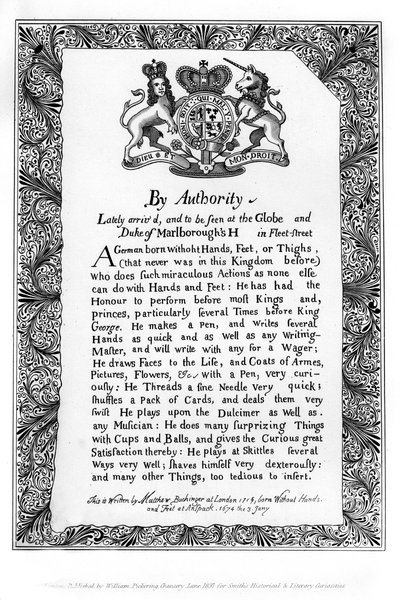 QUI MAL Y
DIEU ET MON DROIT
By Authority
Lately arriv'd, and to be seen at the Globe and
Duke of Marlborough's H in Fleet-street
A German born withoht Hands, Feet, or Thighs,
(that never was in this Kingdom before)
who does such miraculous Actions as none else
can do with Hands and Feet: He has had the
Honour to perform before most Kings and,
princes, particularly several Times before King
George. He makes a Pen, and Writes several
Hands as quick and as well as any Writing-
Master, and will write with any for a Wager;
He draws Faces to the Life, and Coats of Armes,
Pictures, Flowers, &c with a Pen, very curi-
ously: He Threads a fine Needle very quick;
shuffles a Pack of Cards, and deals them very
swift He plays upon the Dulcimer as well as.
any Musician: He does many surprizing Things
with Cups and Balls, and gives the Curious great
Satisfaction thereby: He plays at Skittles several
Ways very Well; shaves himself very dexterously:
and many other Things, too tedious to insert.
This is Written by Matthew Buchinger at London 1718, born Without Hands.
and Feet at Anspack. 1674 the 3. Jany
London, Published by William Pickering, Chancery Lane, 1837, for Smith's Historical & Literary Curiosities